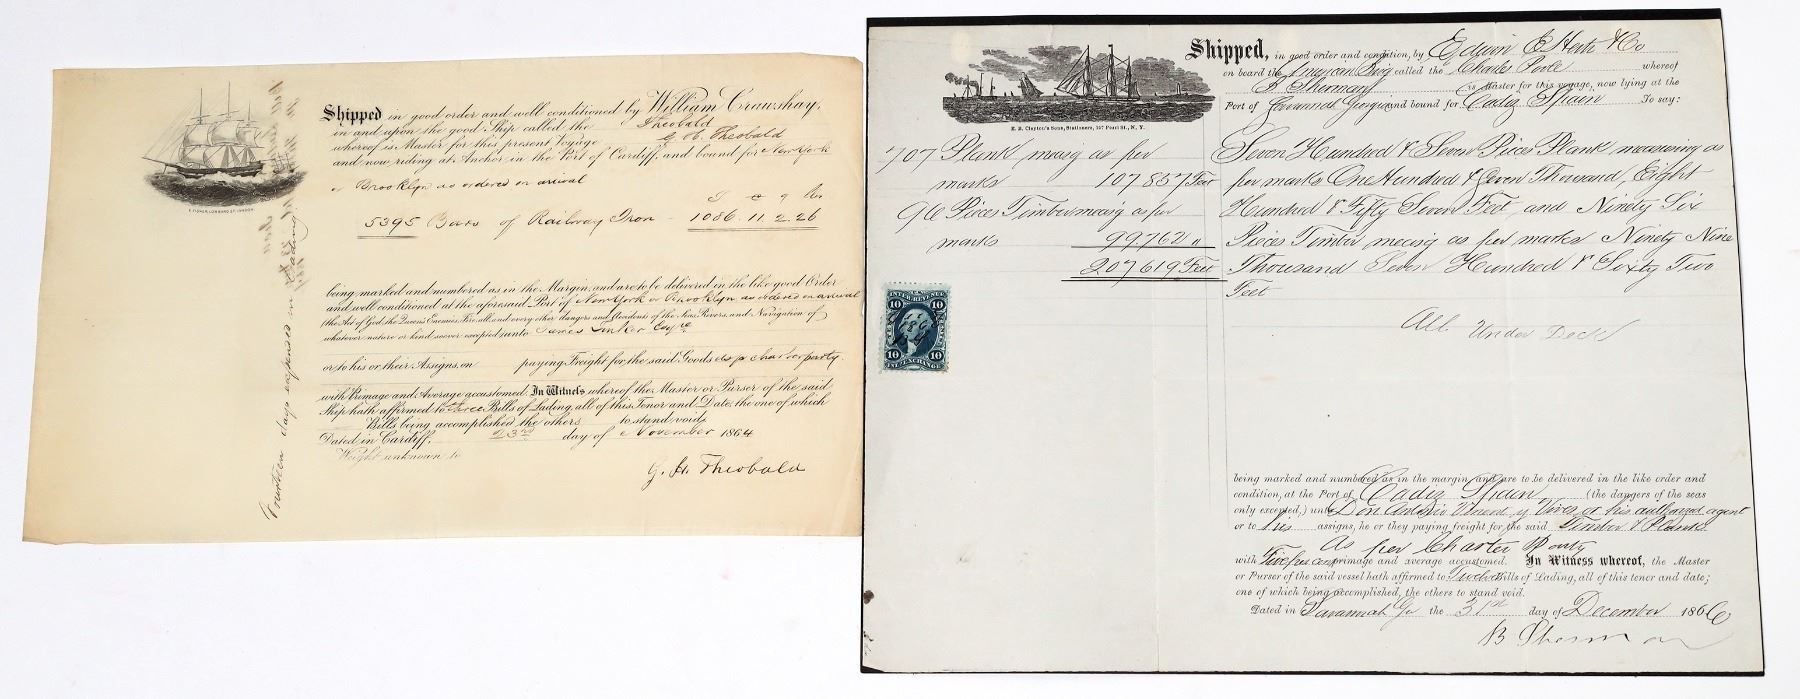 Shipped in good order and well conditioned by William Crawshay,
in and upon the good Ship called the Theobald
whereof is Master for this present Voyage G. H. Theobald
and now riding at Anchor in the Port of Cardiff, and bound for New York
or Brooklyn as ordered on arrival
5395 Bars of Railway Iron - 1086.11.2.26
being marked and numbered as in the Margin, and are to be delivered in the like good Order
and well conditioned at the aforesaid Port of New York or Brooklyn as ordered on arrival
(the Act of God, the Queen's Enemies, Fire, all and every other dangers and Accidents of the Seas, Rivers, and Navigation of
whatever nature or kind soever excepted) unto James Tinker Esqre
or to his or their Assigns, on paying Freight for the said Goods as p charter party.
with Primage and Average accustomed. In Witness whereof the Master or Purser of the said
Ship hath affirmed to three Bills of Lading, all of this Tenor and Date; the one of which
Bills being accomplished the others to stand void.
Dated in Cardiff, 23rd day of November 1864
Weight unknown to
G. H. Theobald
Fourteen days expended in Loading.
E. FISHER, LOMBARD ST. LONDON.
E. B. Clayton's Sons, Stationers, 157 Pearl St., N. Y.
Shipped, in good order and condition, by Edwin E. & Co
on board the American Brig called the Charles Poole whereof
B Sherman is Master for this voyage, now lying at the
Port of Savannah Georgia and bound for Cadiz Spain To say:
707 Plank measg as per
marks 107857 Feet
96 Pieces Timber measg as per
marks 99762 "
207619 Feet
Seven Hundred & Seven Pieces Plank measuring as
per marks One Hundred & Seven Thousand, Eight
Hundred & Fifty Seven Feet, and Ninety Six
Pieces Timber measg as per marks Ninety Nine
Thousand Seven Hundred & Sixty Two
Feet
All Under Deck
U.S. INTER. REVENUE
10 10
10 10
INL. EXCHANGE
being marked and numbered as in the margin and are to be delivered in the like order and
condition, at the Port of Cadiz Spain (the dangers of the seas
only excepted,) unto Don Antonio y Vives or his authorized agent
or to his assigns, he or they paying freight for the said Timber & Plank
As per Charter Party
with Five per cent primage and average accustomed. In Witness whereof, the Master
or Purser of the said vessel hath affirmed to Twelve Bills of Lading, all of this tenor and date;
one of which being accomplished, the others to stand void.
Dated in Savannah Ga the 31st day of December 1866
B Sherman